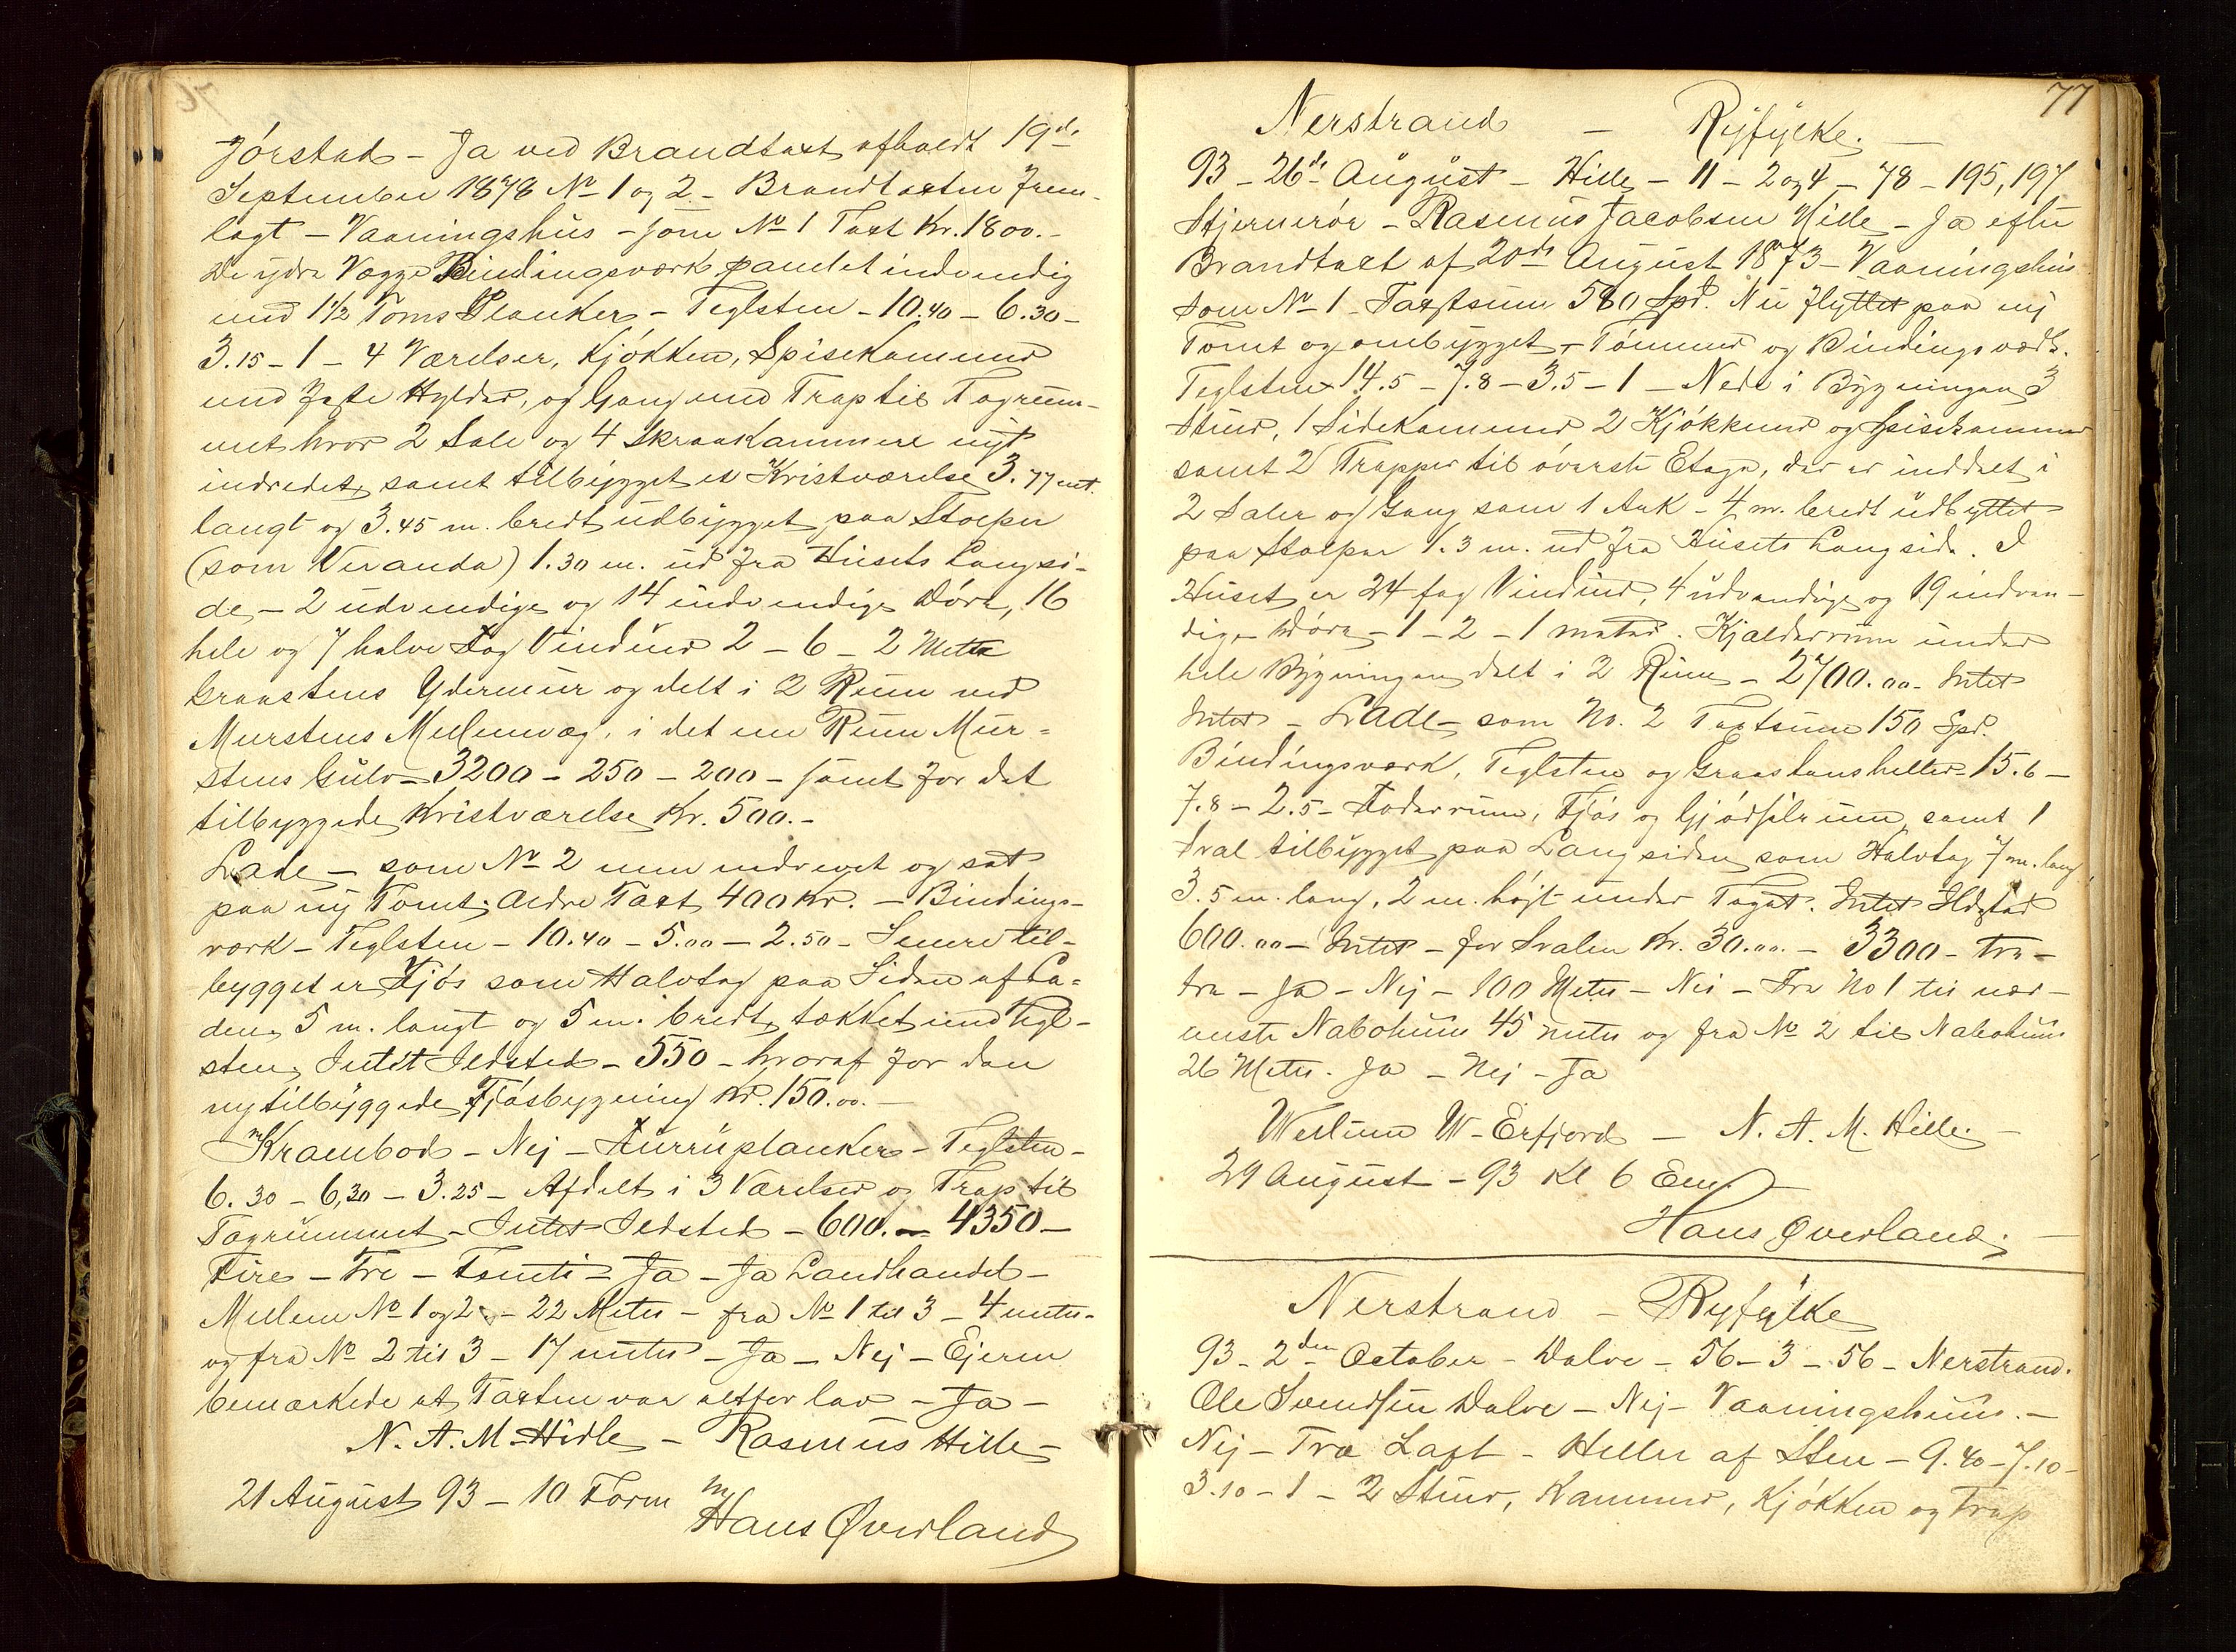 Jørstad – Ja ved Brandtaxt afholdt 19de
September 1878 No 1 og 2 – Brandtaxten frem-
lagt – Vaaningshus – som No 1 Taxt Kr. 1800.–
De ydre Vægge Bindingsværk panelet indvendig
med 1 1/2 Toms Planker – Teglsten – 10.40 – 6.30 –
3.15 – 1 – 4 Værelser, Kjøkken, Spisekammer
med faste Hylder, og Gang med Trap til Tagrum-
met hvor 2 Sale og 4 Skraakammere nyt
indredet, samt tilbygget et Kvistværelse 3.77 mt.
langt og 3.45 m. bredt udbygget paa Stolper
(som Veranda) 1.30 m. ud fra Husets Langsi-
de – 2 udvendige og 14 indvendige Døre, 16
hele og 7 halve Fag Vinduer 2 – 6 – 2 Meter
Graastens Ydermur og delt i 2 Rum ved
Murstens Mellemvæg, i det ene Rum Mur-
stens Gulv – 3200 – 250 – 200 – samt for det
tilbyggede Kvistværelse Kr. 500.–
Lade – som No 2 men nedrevet og sat
paa ny Tomt. Ældre Taxt 400 Kr. – Bindings-
værk – Teglsten – 10.40 – 5.00 – 2.50 – Senere til-
bygget er Fjøs som Halvtag paa Siden af La-
den, 5 m. langt og 5 m. bredt, tækket med Tegl-
sten, Intet Ildsted – 550 – hvoraf for den
nytilbyggede Fjøsbygning Kr. 150.00.–
Krambod – Nej – Furruplanker – Teglsten –
6.30 – 6,30 – 3.25 – Afdelt i 3 Værelser og Trap til
Tagrummet – Intet Ildsted – 600. – 4350 –
Fire – Tre – Tomti – Ja – Ja Landhandel –
Mellem No 1 og 2 – 22 Meter – fra No 1 til 3 – 4 meter –
og fra No 2 til 3 – 17 meter – Ja – Nej – Ejeren
bemærkede at Taxten var altfor lav – Ja –
N. A. M. Hidle – Rasmus Hille –
21 August 93 – 10 Form
Hans Øverland
77
Nerstrand – Ryfylke. –
93 – 26de August – Hille – 11 – 2 og 4 – 78 – 195, 197
Stjernerør – Rasmus Jacobsen Hille – Ja efter
Brandtaxt af 20de August 1873 – Vaaningshus
som No 1 – Taxtsum 580 Spd. Nu flyttet paa ny
Tomt og ombygget – Tømmer og Bindingsværk.
Teglsten 14.5 – 7.8 – 3.5 – 1 – Nede i Bygningen 3
Stuer, 1 Sidekammer 2 Kjøkkener og Spisekammer
samt 2 Trapper til øverste Etage, der er inddelt i
2 Saler og Gang som 1 Ark – 4 m. bredt udbyttet
paa Stolper 1.3 m. ud fra Husets Langside. I
Huset er 24 fag Vinduer, 4 udvendige og 19 indven-
dige Døre – 1 – 2 – 1 meter. Kjælderrum under
hele Bygningen delt i 2 Rum – 2700.00 – Intet
Intet – Lade – som No. 2 Taxtsum 150 Spd.
Bindingsværk, Teglsten og Graastenshelle – 15.6 –
7.8 – 2.5 – Foderrum, Fjøs og Gjødselrum, samt 1
Sval tilbygget paa Langsiden som Halvtag 7 m. lang
3.5 m. lang, 2 m. højt under Taget. Intet Ildsted
600.00 – Intet – for Svalen Kr. 30.00. – 3300 – tre –
tre – Ja – Nej – 100 Meter – Nei – Fra No 1 til nær-
meste Nabohuus 45 meter og fra No 2 til Nabohuus
26 Meter. Ja – Nej – Ja
W. Erfjord – N. A. M. Hille. –
29 August – 93 Kl 6 Em.
Hans Øverland. –
Nerstrand – Ryfylke
93 – 2den October – Dalve – 56 – 3 – 56 – Nerstrand.
Ole Svendsen Dalve – Nej – Vaaningshuus. –
Nej – Træ Laft – Heller af Sten – 9.40 – 7.10 –
3.10 – 1 – 2 Stuer, Kammer, Kjøkken og Trap